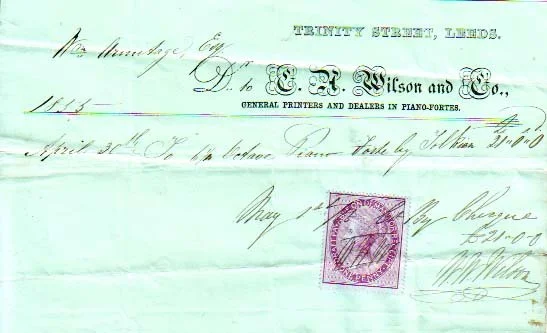 TRINITY STREET, LEEDS.
Wm Armitage, Esq
Dr. to C. N. Wilson and Co.,
GENERAL PRINTERS AND DEALERS IN PIANO-FORTES.
1855
April 30th To 6¾ Octave Piano Forte by Tolkien 21"0"0
May 1st By Cheque
£21-0-0
Wilson